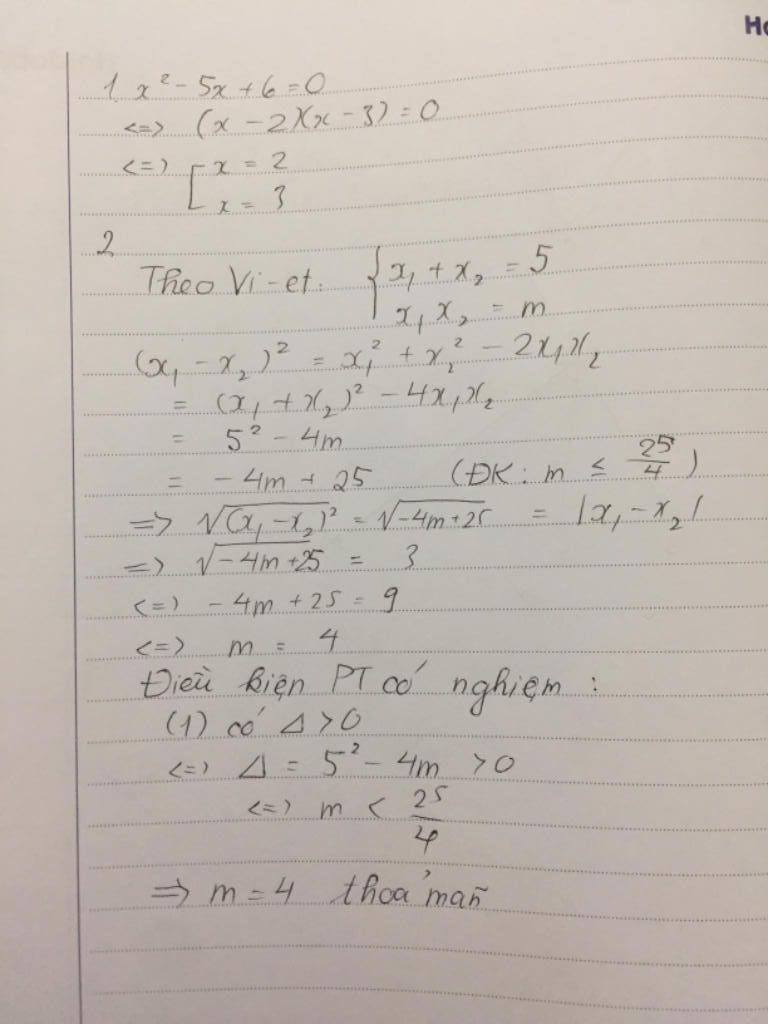 Ho
1, x² - 5x + 6 = 0
<=> (x - 2)(x - 3) = 0
<=> [ x = 2
x = 3
2
Theo Vi-et: { x₁ + x₂ = 5
x₁ x₂ = m
(x₁ - x₂)² = x₁² + x₂² - 2x₁x₂
= (x₁ + x₂)² - 4x₁x₂
= 5² - 4m
= -4m + 25 (ĐK: m ≤ 25/4)
=> √(x₁ - x₂)² = √-4m+25 = |x₁ - x₂|
=> √-4m+25 = 3
<=> -4m + 25 = 9
<=> m = 4
Điều kiện PT có nghiệm :
(1) có Δ > 0
<=> Δ = 5² - 4m > 0
<=> m < 25/4
=> m = 4 thoả mãn